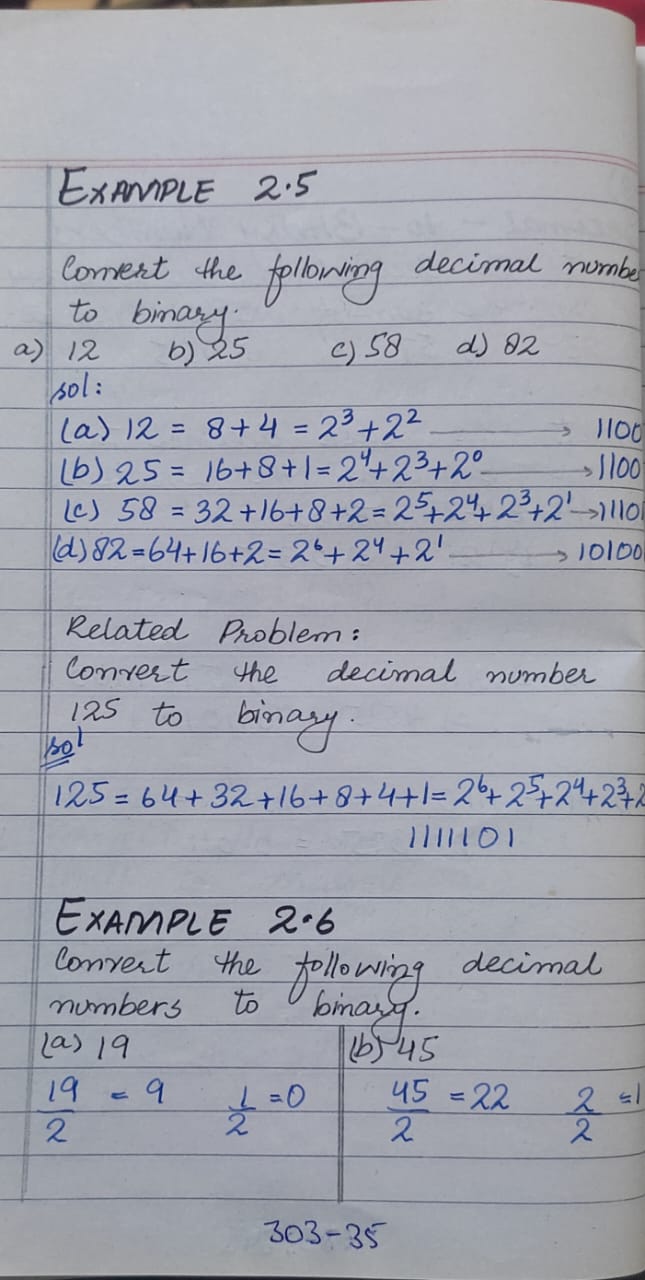 EXAMPLE 2.5
Convert the following decimal numbe
to binary.
a) 12 b) 25 c) 58 d) 82
sol:
(a) 12 = 8+4 = 2³+2² → 1100
(b) 25 = 16+8+1 = 2⁴+2³+2⁰ → 1100
(c) 58 = 32+16+8+2 = 2⁵+2⁴+2³+2¹ → 1110
(d) 82 = 64+16+2 = 2⁶+2⁴+2¹ → 10100
Related Problem:
Convert the decimal number
125 to binary.
sol
125 = 64+32+16+8+4+1 = 2⁶+2⁵+2⁴+2³+2
1111101
EXAMPLE 2.6
Convert the following decimal
numbers to binary.
(a) 19 (b) 45
19/2 = 9 1/2 = 0 45/2 = 22 2/2 = 1
303-35